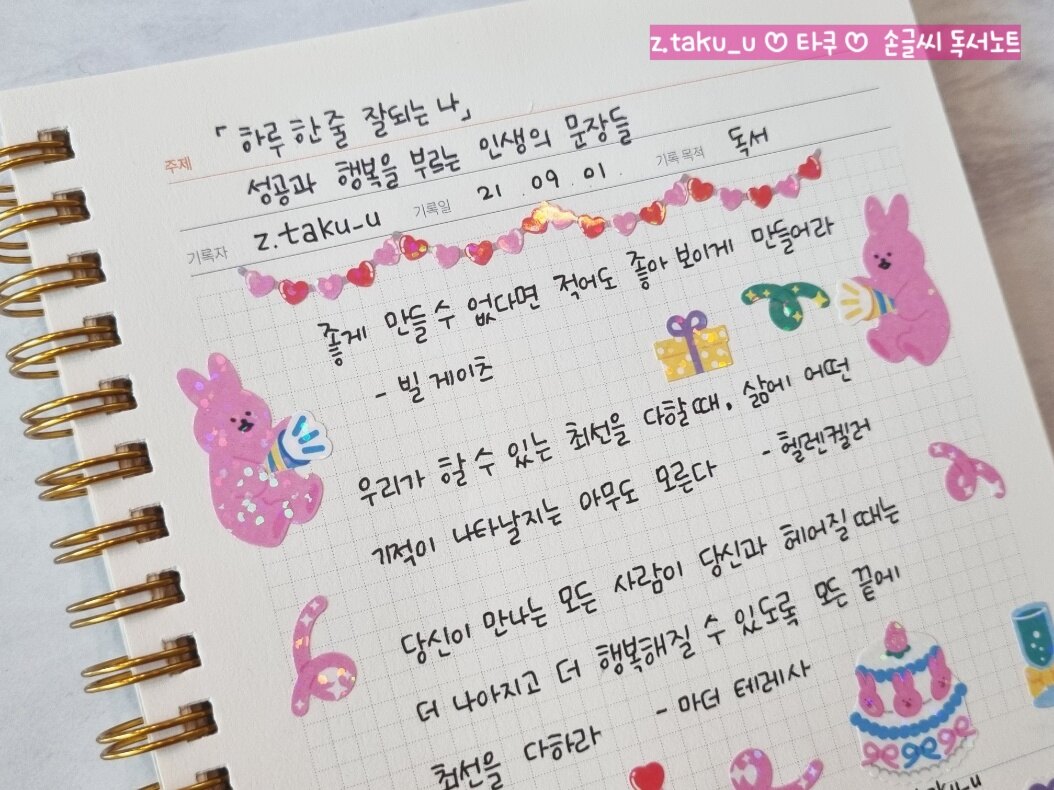 z.taku_u ♡ 타쿠 ♡ 손글씨 독서노트
주제 「하루 한 줄 잘되는 나」
성공과 행복을 부르는 인생의 문장들
기록자 z.taku_u 기록일 21.09.01. 기록 목적 독서
좋게 만들 수 없다면 적어도 좋아 보이게 만들어라
- 빌 게이츠
우리가 할 수 있는 최선을 다할 때, 삶에 어떤
기적이 나타날지는 아무도 모른다 - 헬렌켈러
당신이 만나는 모든 사람이 당신과 헤어질 때는
더 나아지고 더 행복해질 수 있도록 모든 끝에
최선을 다하라 - 마더 테레사